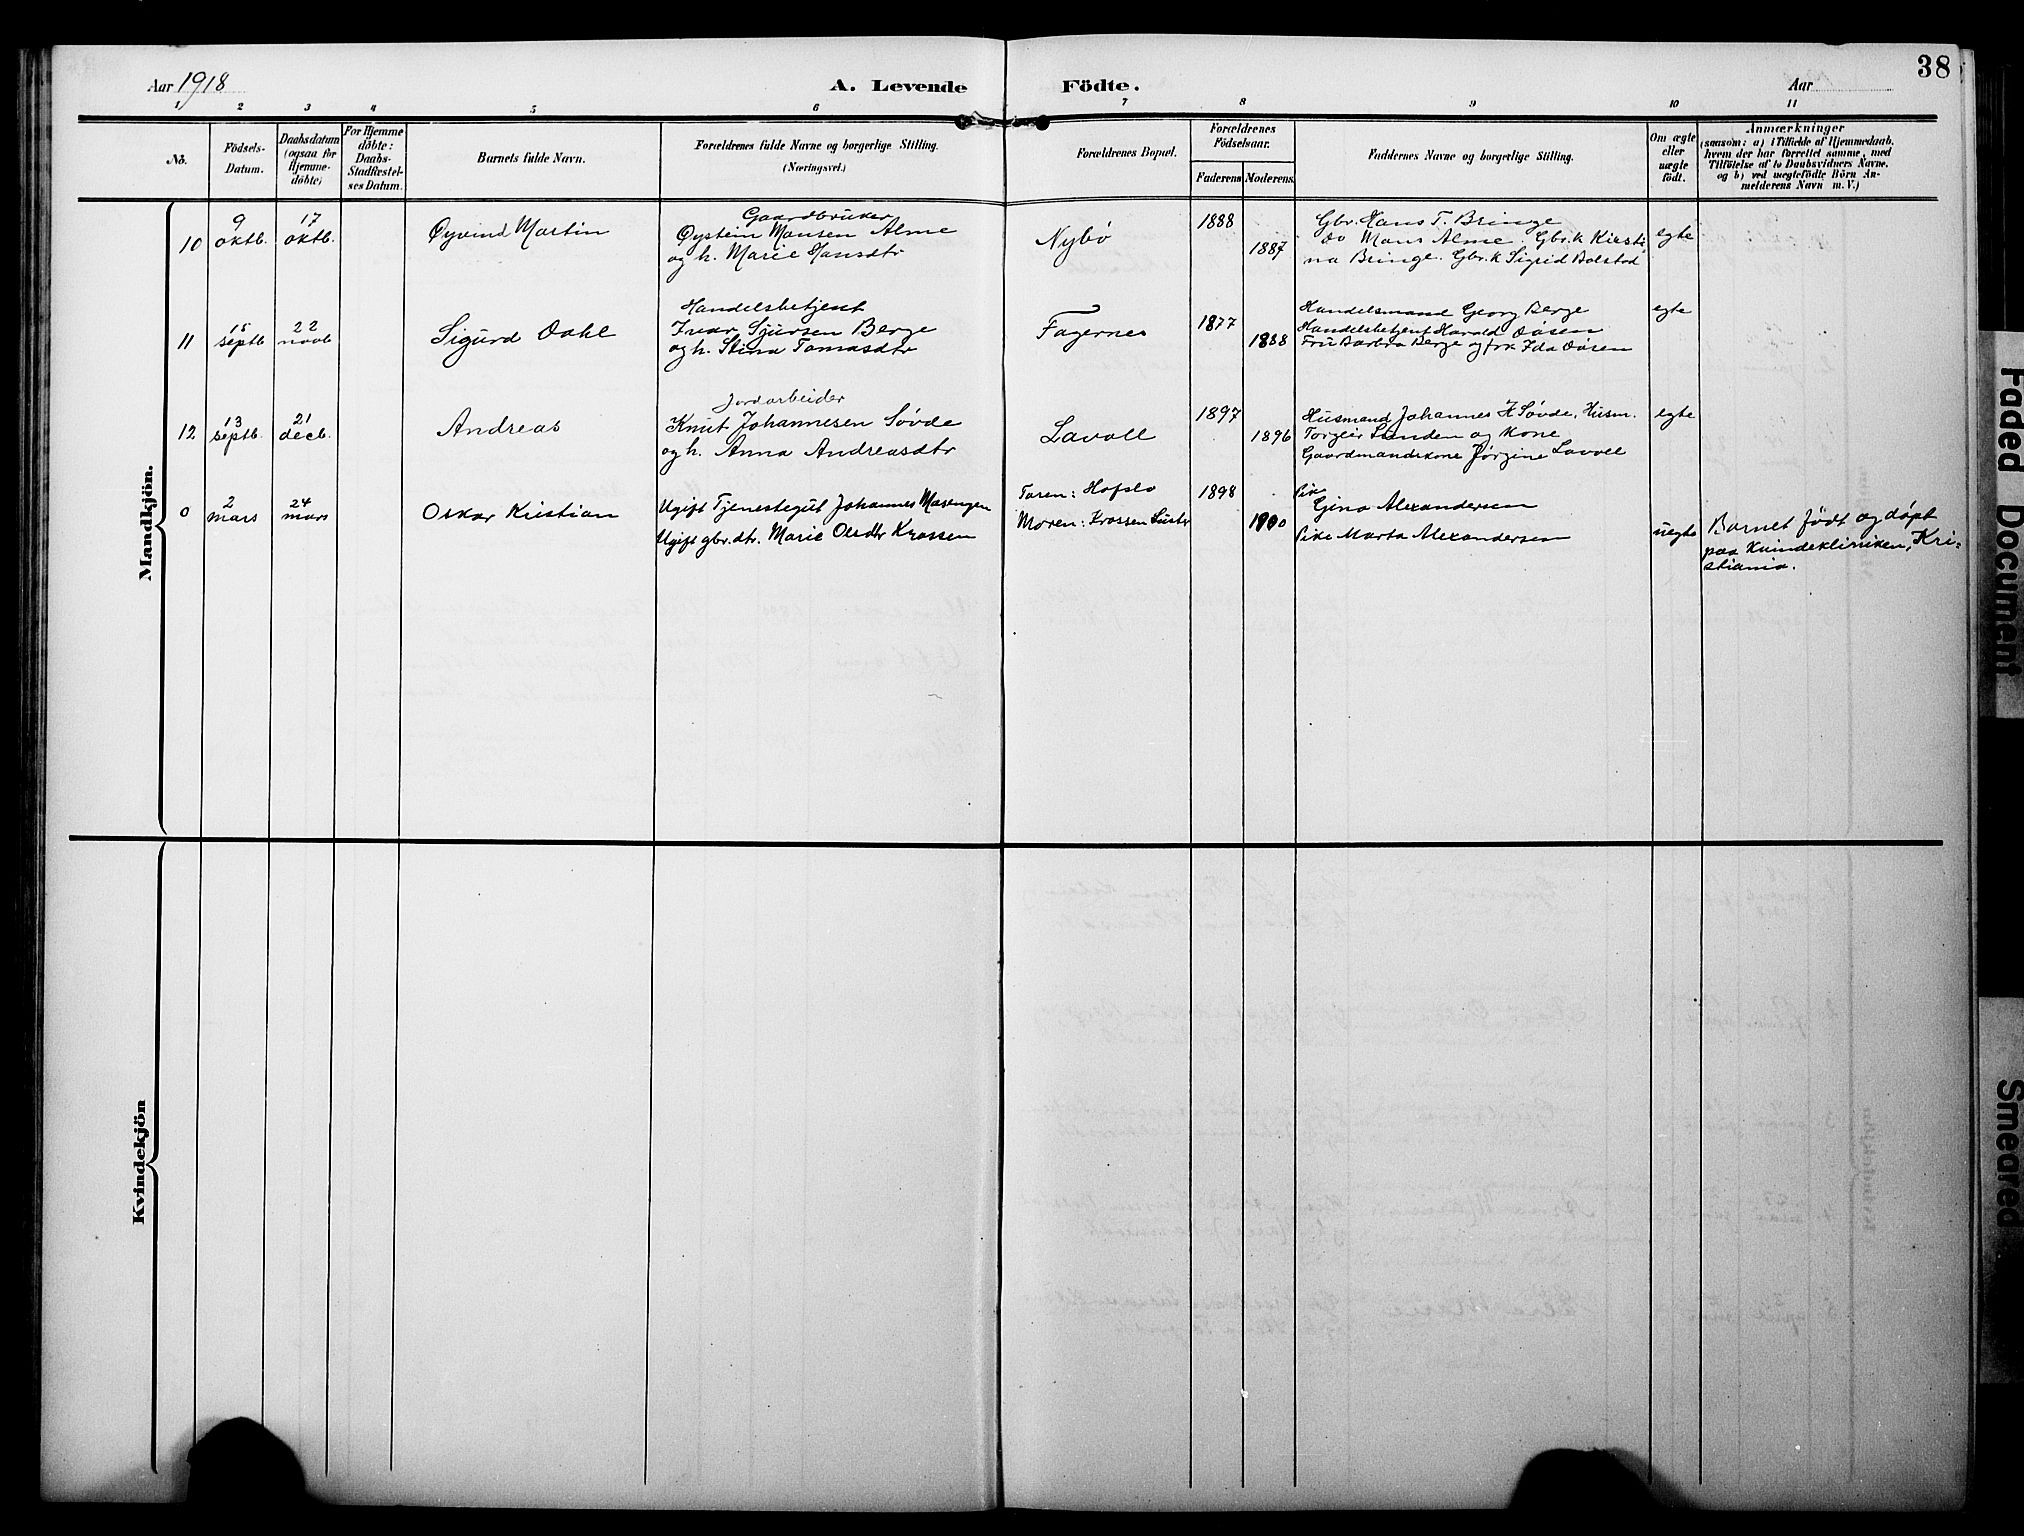 38
Aar 1918
A. Levende Födte.
Aar
1 2 3 4 5 6 7 8 9 10 11
No.
Födsels-
Datum.
Daabsdatum
(ogsaa for
Hjemme-
döbte)
For Hjemme
döbte:
Daabs-
Stadfæstel-
ses Datum.
Barnets fulde Navn.
Forældrenes fulde Navne og borgerlige Stilling.
(Næringsvei.)
Forældrenes Bopæl.
Forældrenes
Födselsaar.
Faderens Moderens.
Faddernes Navne og borgerlige Stilling.
Om ægte
eller
uægte
födt.
Anmærkninger
(saasom: a) i Tilfælde af Hjemmedaab,
hvem der har forrettet samme, med
Tilföielse af to Daabsvidners Navne,
og b) ved uægtefödte Börn An-
melderens Navn m. V.)
Mandkjön.
10
9
oktb.
17
oktb.
Øyvind Martin
Gaardbruker
Øystein Monsen Alme
og h. Marie Hansdtr
Nybø
1888
1887
Gbr. Hans T. Bringe
do Mons Alme. Gbr.k Kirsti
na Bringe. Gbr.k Sigrid Bolstad
egte
11
15
septb
22
novb
Sigurd Dahl
Handelsbetjent
Ivar Sjursen Berge
og h. Stina Tomasdtr
Fagernes
1877
1888
Handelsmand Georg Berge
Handelsbetjent Harald Døsen
Fru Barbra Berge og frk Ida Døsen
egte
12
13
septb.
21
decb.
Andreas
Jordarbeider
Knut Johannesen Søvde
og h. Anna Andreasdtr
Lavoll
1897
1896
Husmand Johannes K Søvde, Husm.
Torgeir Sunden og kone
Gaardmandskone Jørgine Lavoll
egte
0
2
mars
24
mars
Oskar Kristian
Ugift Tjenestegut Johannes Marengen
Ugift gbr.dtr. Marie Olsdtr Krossen
Faren: Hofslo
Moren: Krossen Luster
1898
1900
Pike
Gina Alexandersen
Pike Marta Alexandersen
uegte
Barnet født og døpt
paa Kvindeklinikken, Kri-
stiania.
Kvindekjön
Faded Document
Smeared